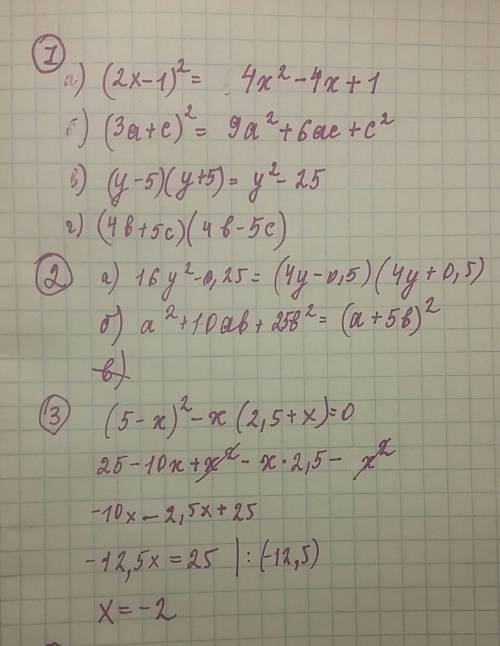 1
а) (2x-1)² = 4x² - 4x + 1
б) (3a+c)² = 9a² + 6ac + c²
в) (y-5)(y+5) = y² - 25
г) (4b+5c)(4b-5c)
2 а) 16y² - 0,25 = (4y-0,5)(4y+0,5)
б) a² + 10ab + 25b² = (a+5b)²
в)
3 (5-x)² - x(2,5+x)=0
25-10x+x² - x·2,5 - x²
-10x - 2,5x + 25
-12,5x = 25 | : (-12,5)
x = -2